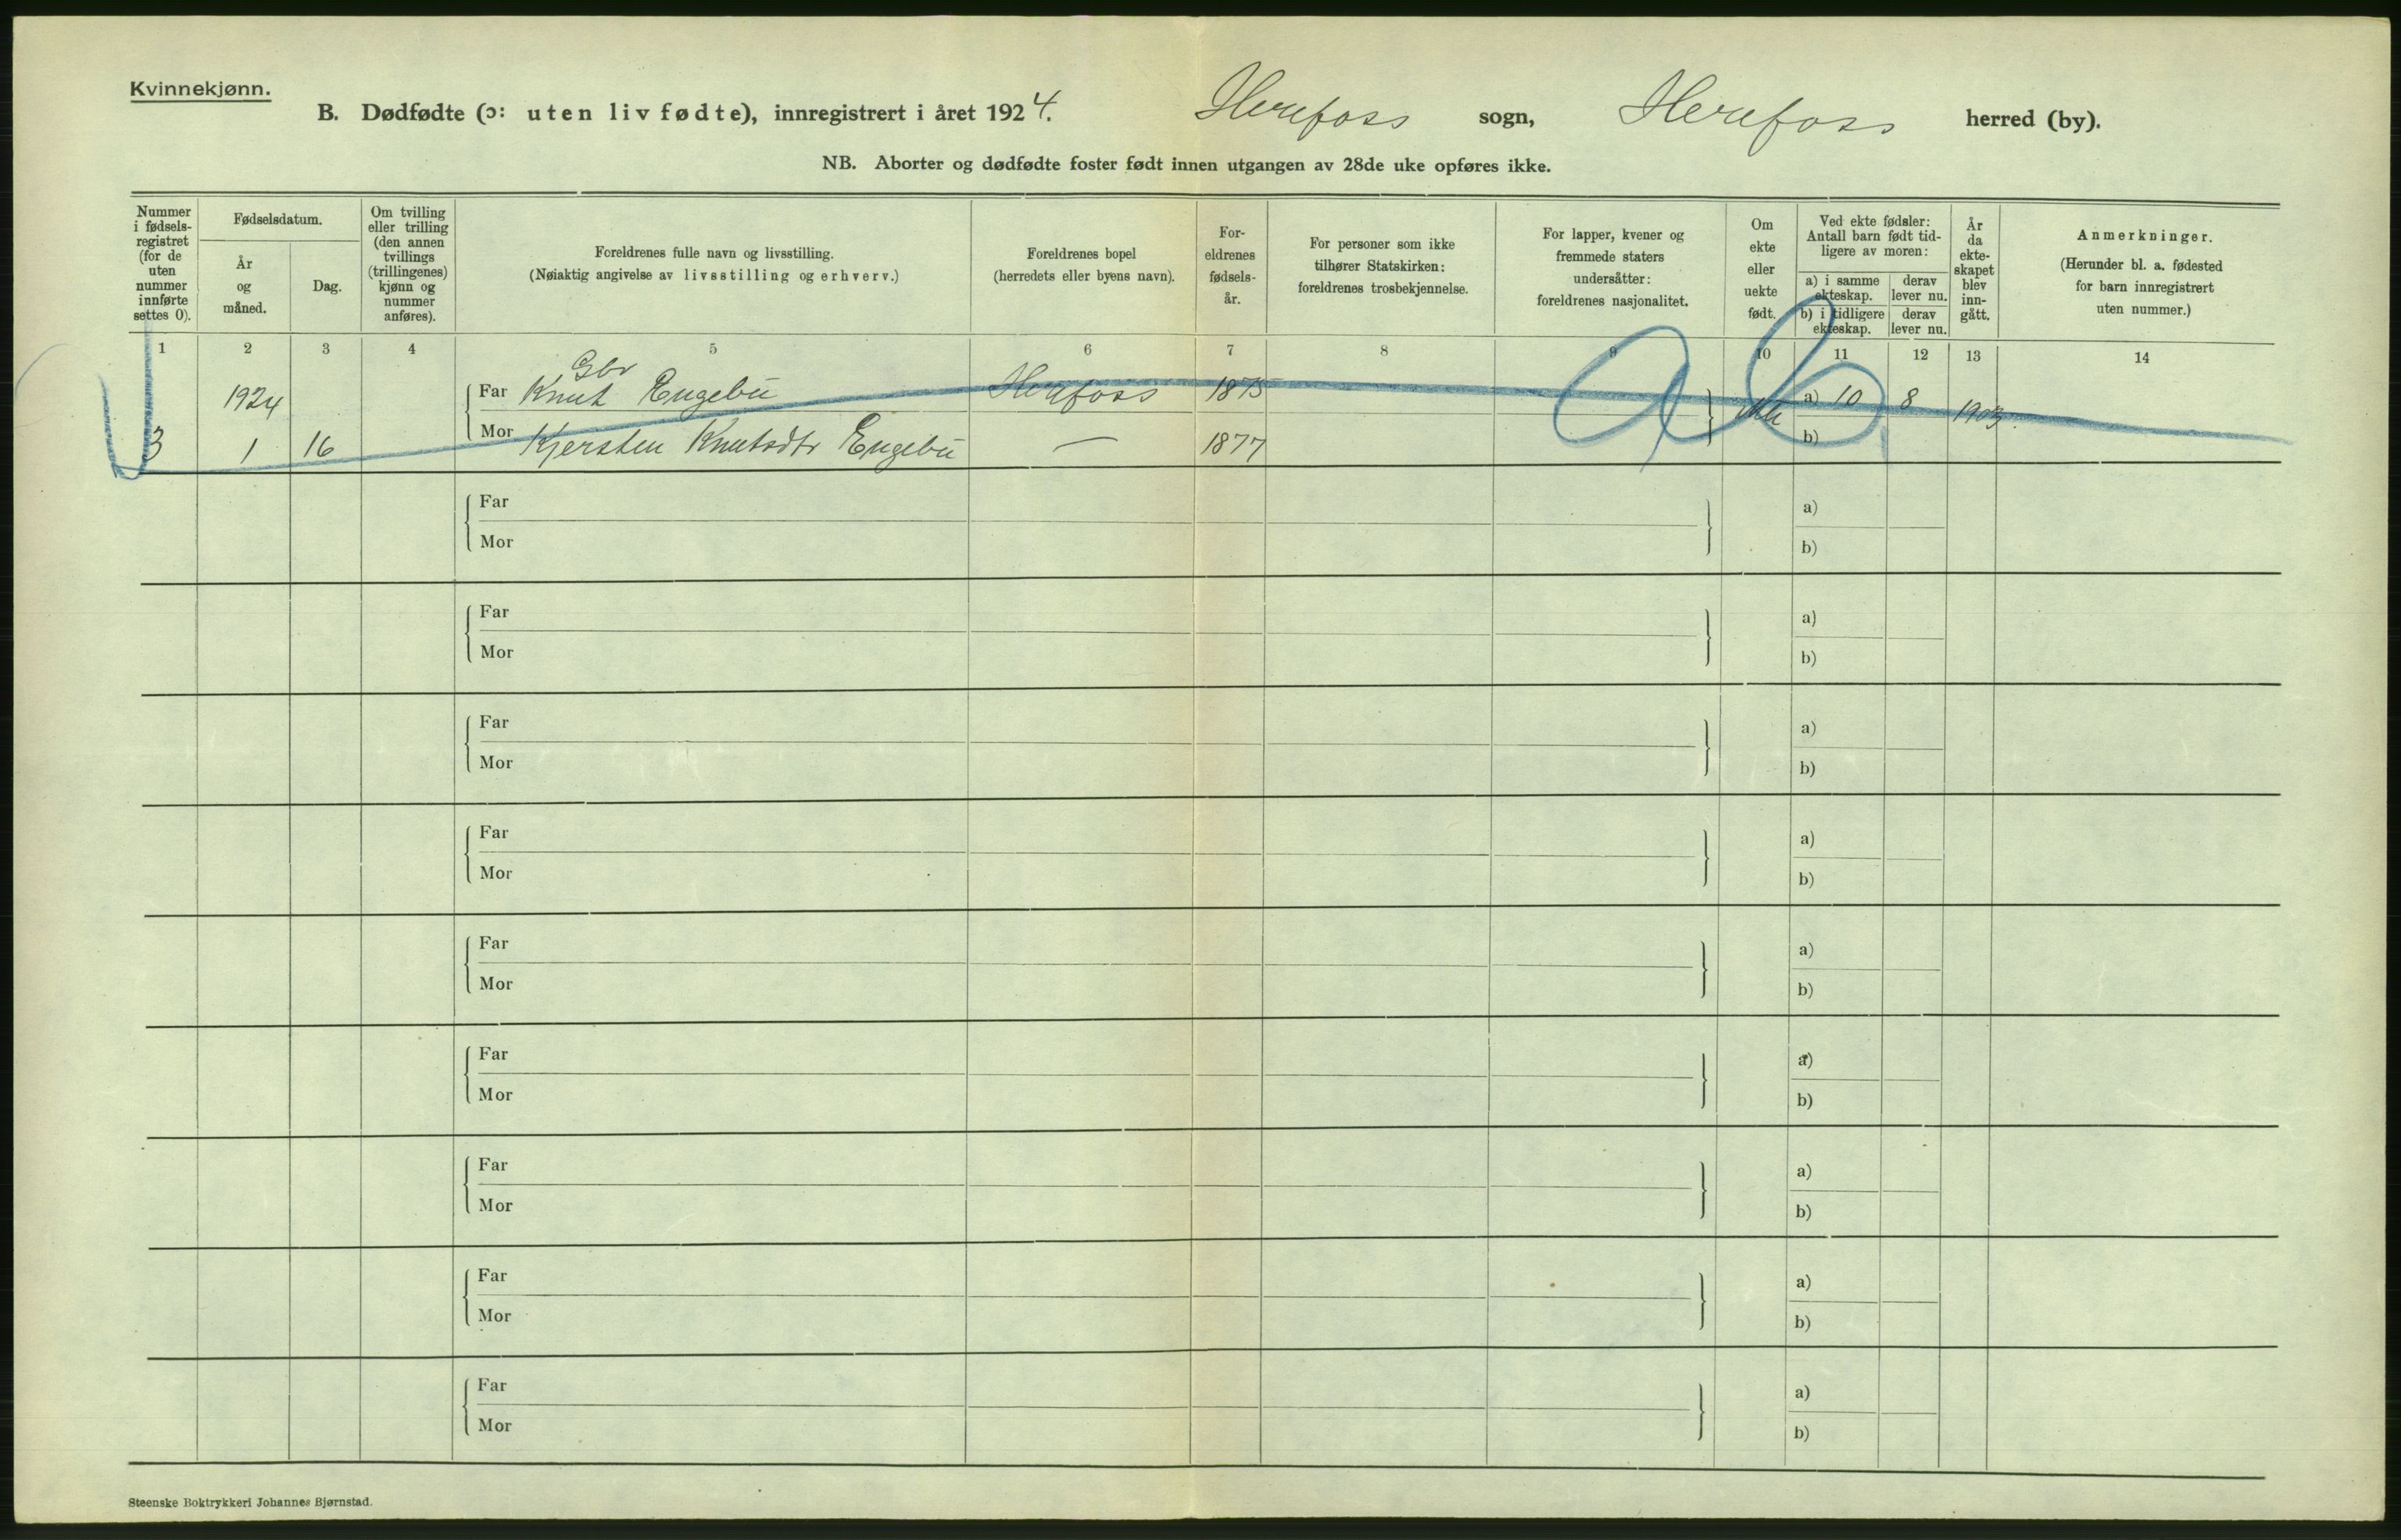 Kvinnekjønn.
B. Dødfødte (ɔ: uten liv fødte), innregistrert i året 1924. Herefoss sogn, Herefoss herred (by).
NB. Aborter og dødfødte foster født innen utgangen av 28de uke opføres ikke.
Nummer i fødsels- registret (for de uten nummer innførte settes 0).
Fødselsdatum.
År og måned.
Dag.
Om tvilling eller trilling (den annen tvillings (trillingenes) kjønn og nummer anføres).
Foreldrenes fulle navn og livsstilling.
(Nøiaktig angivelse av livsstilling og erhverv.)
Foreldrenes bopel
(herredets eller byens navn).
For- eldrenes fødsels- år.
For personer som ikke tilhører Statskirken: foreldrenes trosbekjennelse.
For lapper, kvener og fremmede staters undersåtter: foreldrenes nasjonalitet.
Om ekte eller uekte født.
Ved ekte fødsler: Antall barn født tid- ligere av moren:
a) i samme ekteskap.
derav lever nu.
b) i tidligere ekteskap.
derav lever nu.
År da ekte- skapet blev inn- gått.
Anmerkninger.
(Herunder bl. a. fødested for barn innregistrert uten nummer.)
1 2 3 4 5 6 7 8 9 10 11 12 13 14
Gbr
1924 Far Knut Engebu Herefoss 1875 ekte a) 10 8 1903
3 1 16 Mor Kjersten Knutsdtr Engebu — 1877 b)
Far a)
Mor b)
Far a)
Mor b)
Far a)
Mor b)
Far a)
Mor b)
Far a)
Mor b)
Far a)
Mor b)
Far a)
Mor b)
Far a)
Mor b)
Far a)
Mor b)
Steenske Boktrykkeri Johannes Bjørnstad.